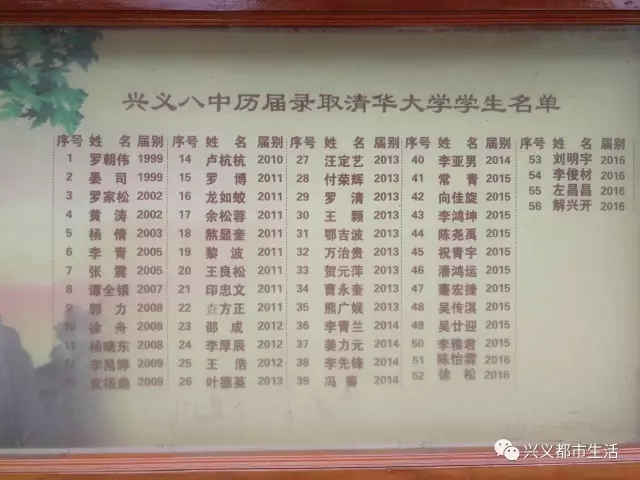 兴义八中历届录取清华大学学生名单
序号 姓 名 届别 序号 姓 名 届别 序号 姓 名 届别 序号 姓 名 届别 53 刘明宇 2016
1 罗朝伟 1999 14 卢杭杭 2010 27 汪定艺 2013 40 李亚男 2014 54 李俊材 2016
2 晏 司 1999 15 罗 博 2011 28 付荣辉 2013 41 常 青 2015 55 左昌昌 2016
3 罗家松 2002 16 龙如蛟 2011 29 罗 清 2013 42 向佳旋 2015 56 解兴开 2016
4 黄 涛 2002 17 余松蓉 2011 30 王 颗 2013 43 李鸿坤 2015
5 杨 倩 2003 18 熬显奎 2011 31 鄂吉波 2013 44 陈尧禹 2015
6 李 青 2005 19 黎 波 2011 32 万治贵 2013 45 祝青宇 2015
7 张 震 2005 20 王良松 2011 33 贺元萍 2013 46 潘鸿运 2015
8 谭全银 2007 21 印忠文 2011 34 曹永奎 2013 47 蹇宏捷 2015
9 郭 力 2008 22 方正 2011 35 熊广娱 2013 48 吴传淇 2015
10 徐 舟 2008 23 邵 成 2012 36 李青兰 2014 49 吴廿迎 2015
11 杨晓东 2008 24 李厚辰 2012 37 姜力元 2014 50 李雅君 2015
12 李昌婷 2009 25 王 浩 2012 38 李先锋 2014 51 陈怡霖 2016
福鼎 2009 26 叶德英 2013 39 冯 睿 2014 52 徐 松 2016
兴义都市生活